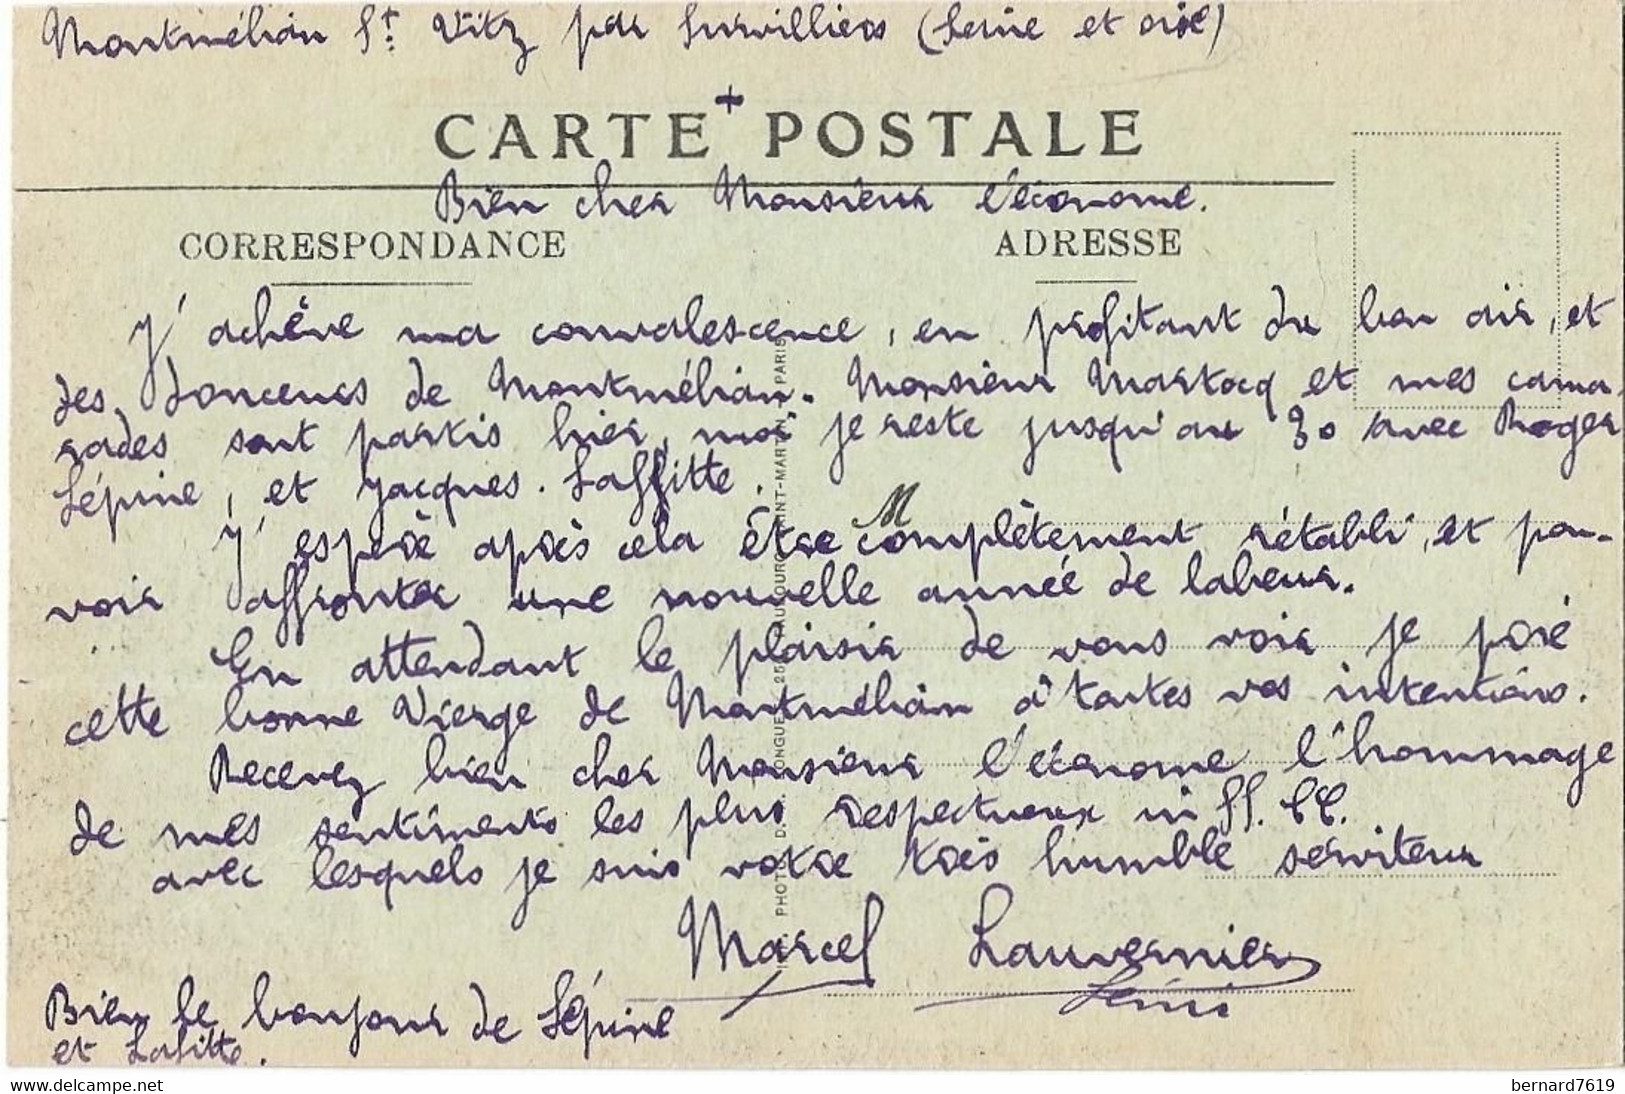 Montmélian St Vitz par Survilliers (Seine et oise)
+
CARTE POSTALE
Bien cher Monsieur l'économe.
CORRESPONDANCE
ADRESSE
J'achève ma convalescence, en profitant du bon air, et
des douceurs de Montmélian. Monsieur Martocq et mes cama-
rades sont partis hier, moi je reste jusqu'au 30 avec Roger
Lépine, et Jacques. Laffitte.
M
J'espère après cela être complètement rétabli, et pou-
voir affronter une nouvelle année de labeur.
En attendant le plaisir de vous voir je prie
cette bonne Vierge de Montmélian à toutes vos intentions.
Recevez bien cher Monsieur l'économe l'hommage
de mes sentiments les plus respectueux in SS. CC.
avec lesquels je suis votre très humble serviteur
Marcel Lauvernier
Bien le bonjour de Lépine
et Lafitte.
PHOTO D. LONGUET 250 FAUBOURG SAINT-MARTIN PARIS
www.delcampe.net
bernard7619